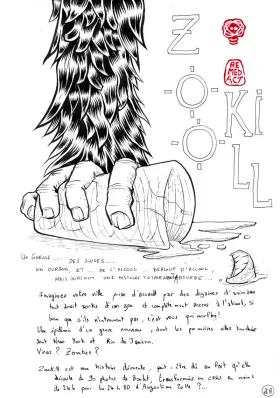 ZOO
KILL
RE
MED
ACT
UN GORILLE... DES SINGES...
UN OURSON, ET DE L'ALCOOL... BEAUCOUP D'ALCOOL,
MAIS SURTOUT UNE HISTOIRE TOTALEMENT ABSURDE...
Imaginez votre ville prise d'assaut par des dizaines d'animaux
tout droit sortis d'un zoo et complètement accros à l'alcool, si
bien que s'ils n'en trouvent pas, c'est vous qui morflez!
Une épidémie d'un genre nouveau, dont les premières villes touchées
sont New York et Rio de Janeiro.
Virus? Zombies?
ZooKill est une histoire déjantée, peut-être dû au fait qu'elle
découle de 30 photos de Boulet, transformées en cases en moins
de 24h pour la 24h BD d'Angoulême 2014 ?...